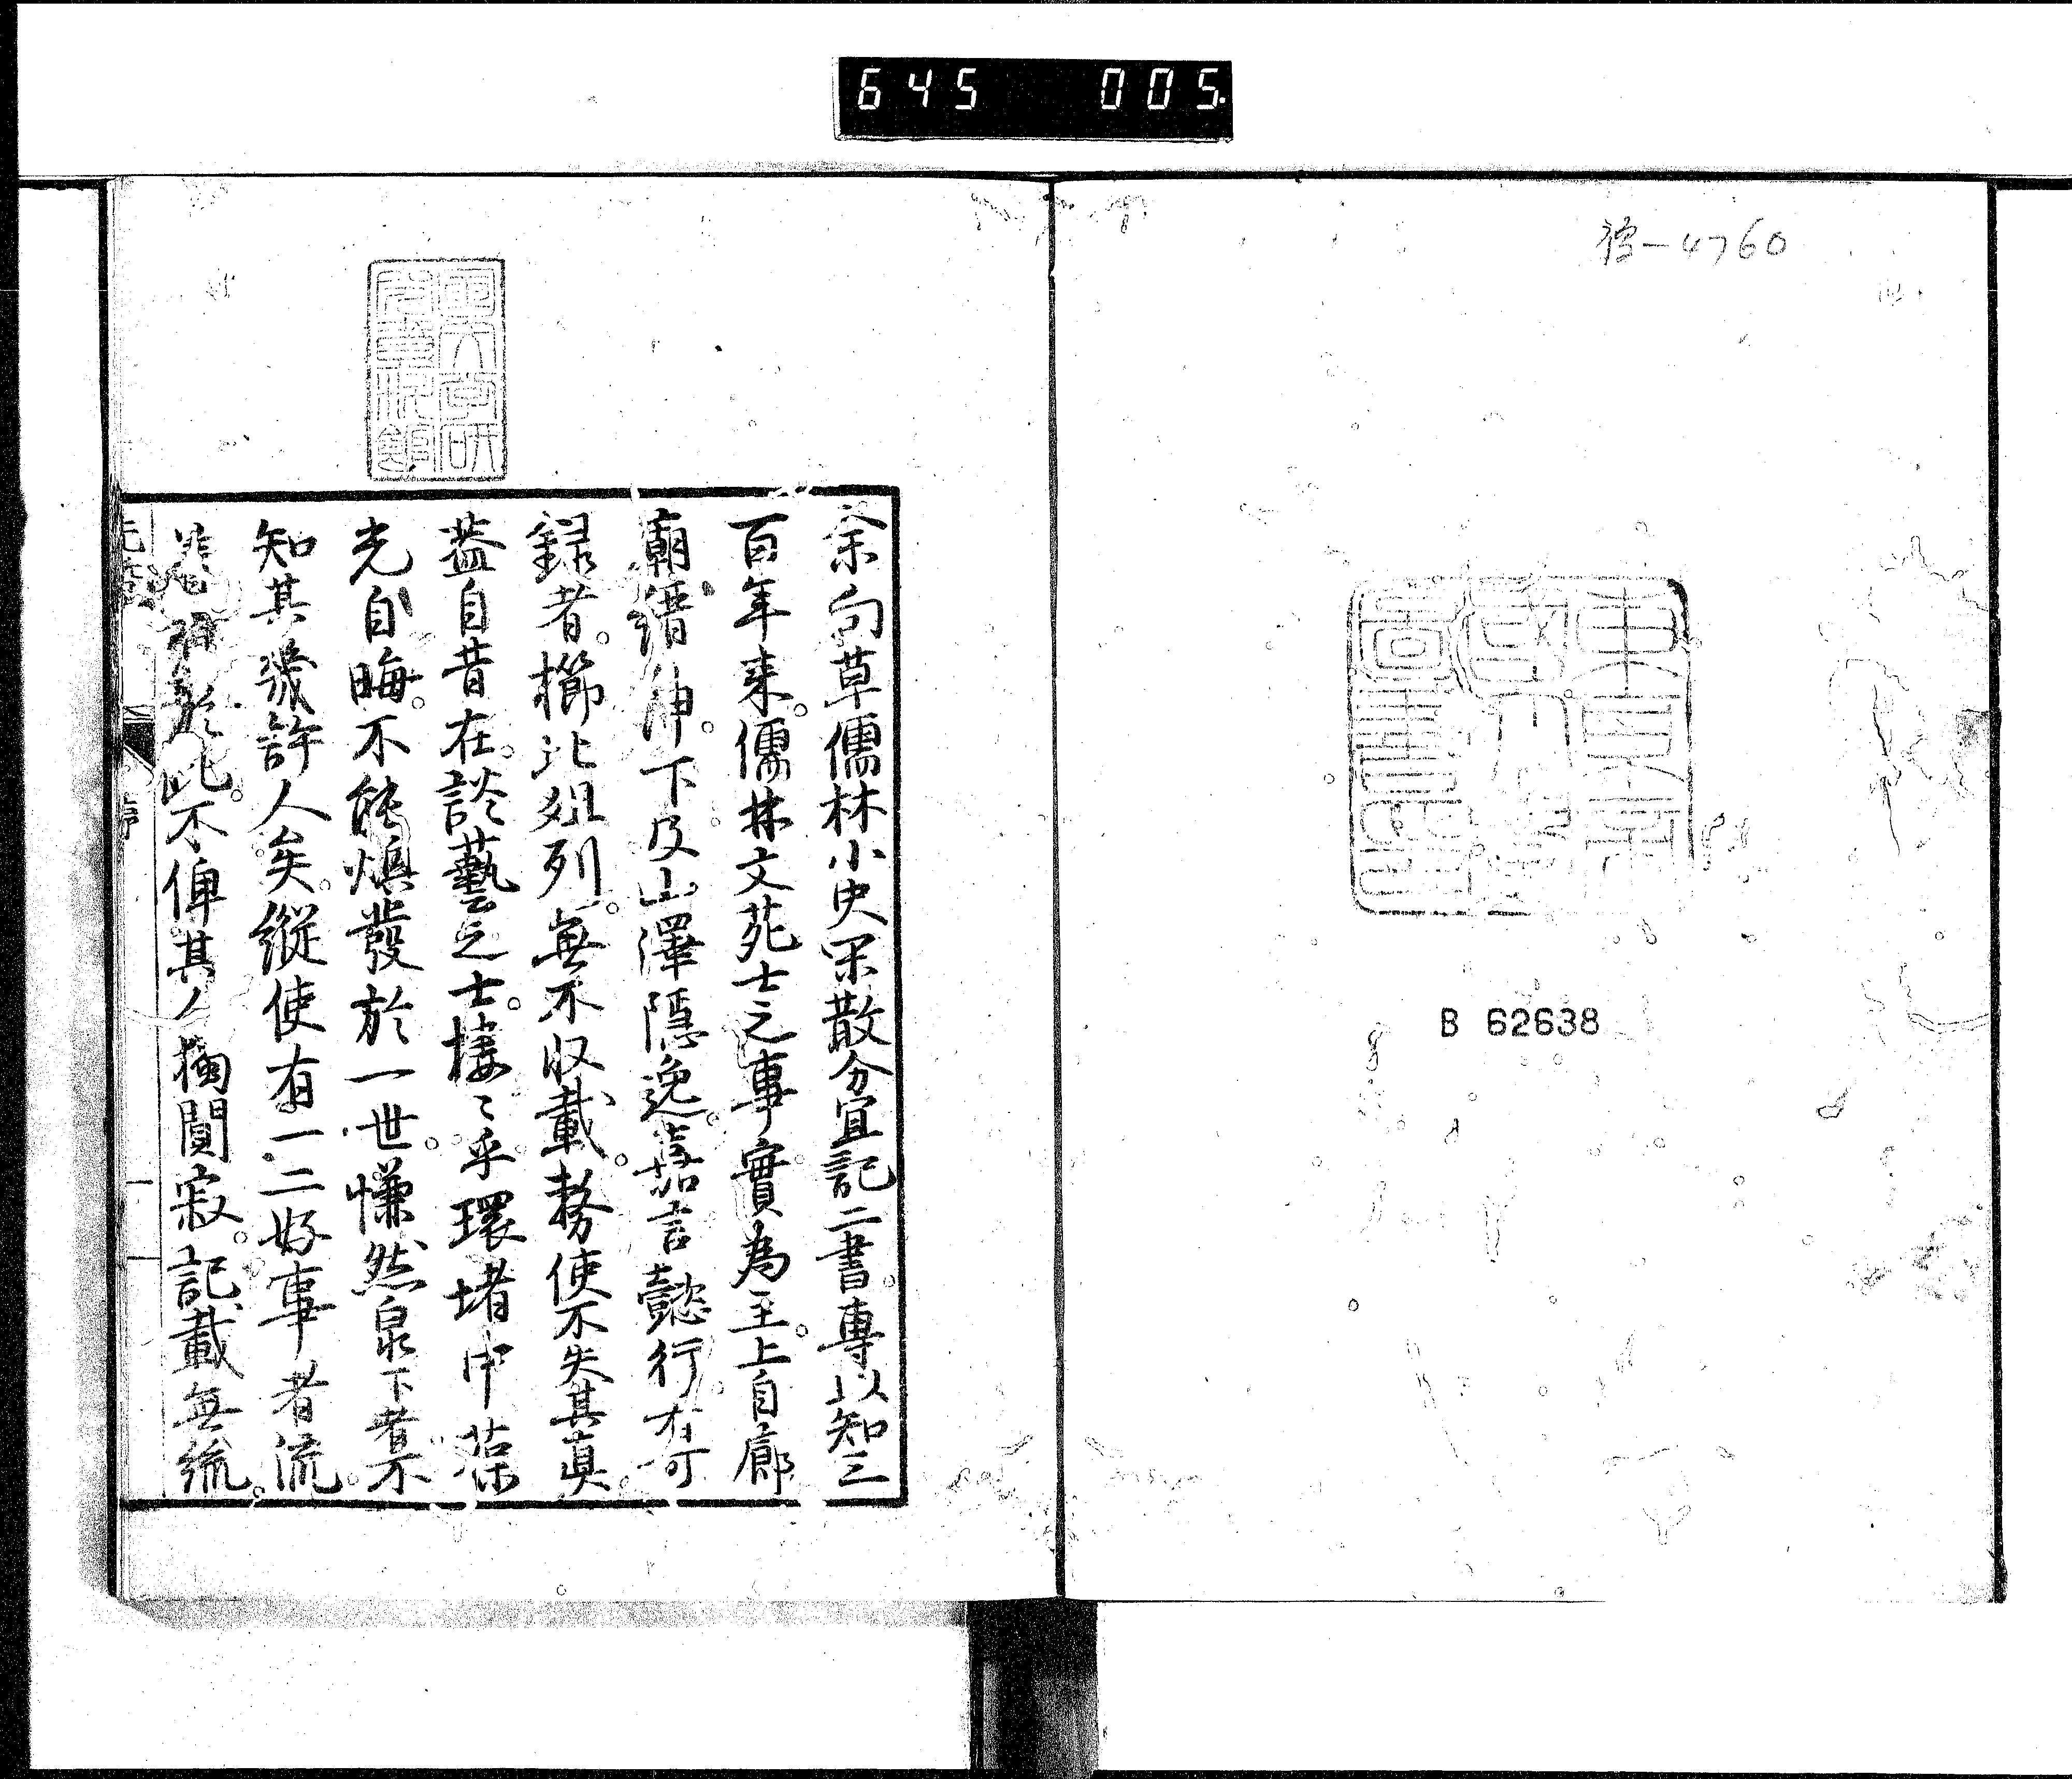 645 005
禮-4760
B 62638
余向草儒林小史宋散分宜記二書專以知三
百年来。儒林文苑士之事實為主。上自廊
廟縉紳。下及山澤隠逸。嘉言懿行。有可
録者。櫛比俎列。無不収載。務使不失其真。
蓋自昔在談藝之士。棲〻乎環堵中葆
光自晦。不能煥發於一世。慊然泉下者。不
知其幾許人矣。縱使有一二好事者流。
於此。不俾其人獨闃寂。記載無統。
序